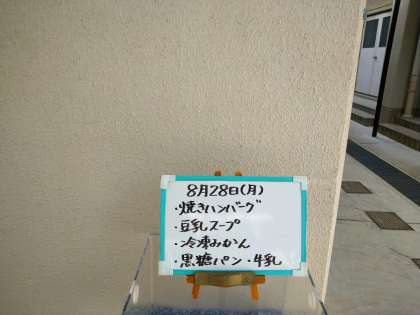 8月28日(月)
・焼きハンバーグ
・豆乳スープ
・冷凍みかん
・黒糖パン・牛乳